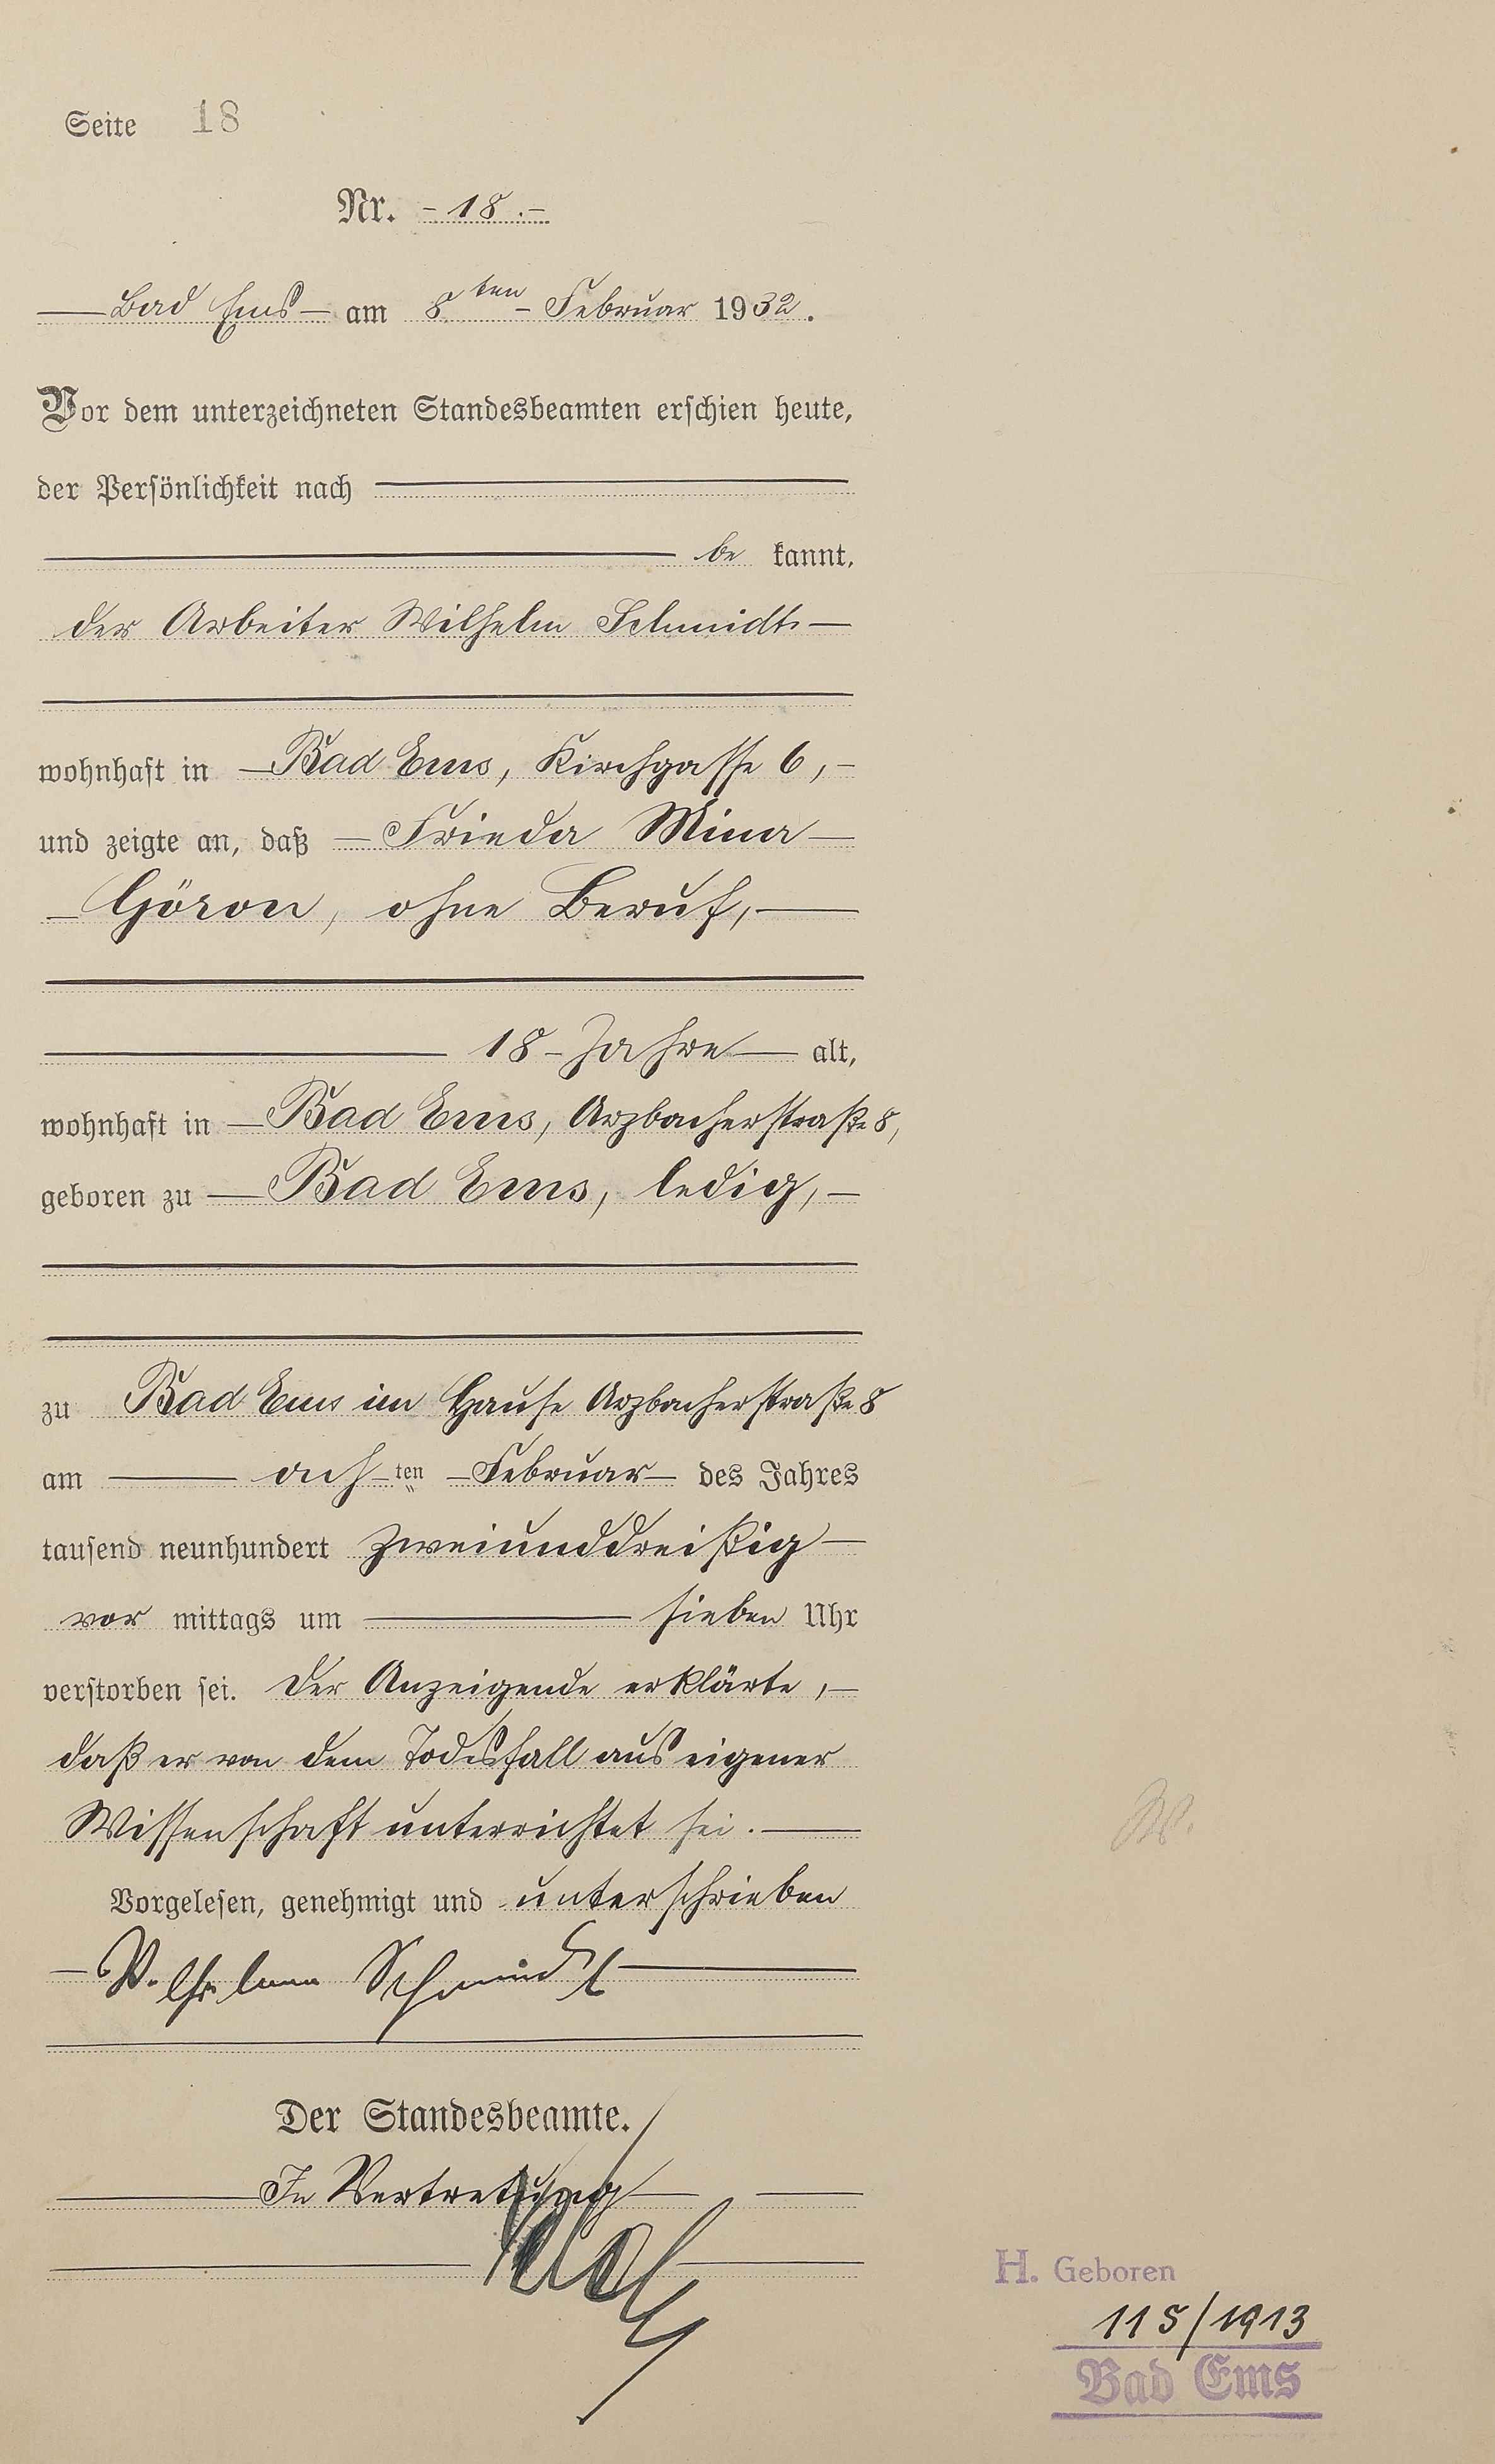 Seite 18
Nr. - 18. -
Bad Ems - am 8ten - Februar 1932.
Vor dem unterzeichneten Standesbeamten erschien heute,
der Persönlichkeit nach
be kannt,
der Arbeiter Wilhelm Schmidt -
wohnhaft in - Bad Ems, Kirchgasse 6, -
und zeigte an, daß - Frieda Mina -
- Göron, ohne Beruf, -
18 - Jahre - alt,
wohnhaft in - Bad Ems, Arzbacherstraße 8,
geboren zu - Bad Ems, ledig, -
zu Bad Ems im Hause Arzbacherstraße 8
am - ach - ten - Februar - des Jahres
tausend neunhundert zweiunddreißig -
vor mittags um - sieben Uhr
verstorben sei. Der Anzeigende erklärte, -
daß er von dem Todesfall aus eigener
Wissenschaft unterrichtet sei. -
Vorgelesen, genehmigt und unterschrieben
- Wilhelm Schmidt -
Der Standesbeamte.
In Vertretung
W.
H. Geboren
115/1913
Bad Ems